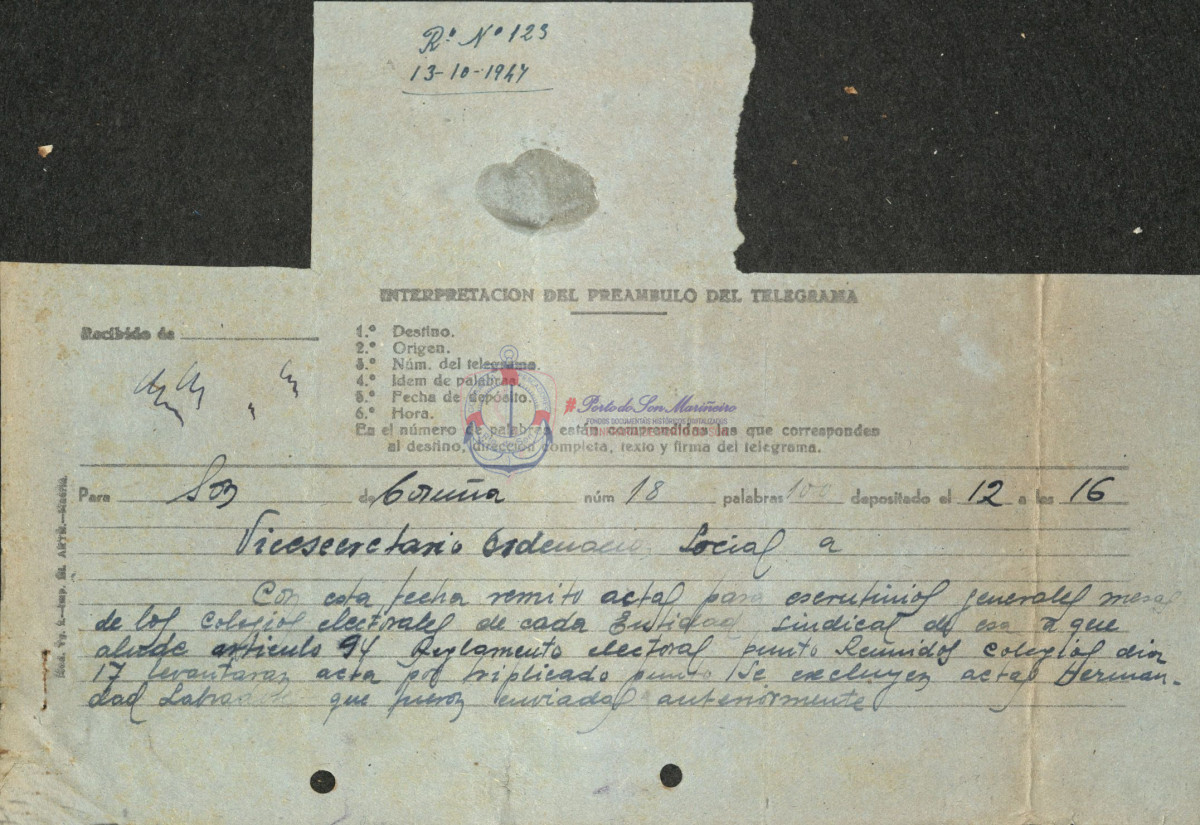 Rº Nº 123
13-10-1947
INTERPRETACION DEL PREAMBULO DEL TELEGRAMA
Recibido de
1.º Destino.
2.º Origen.
3.º Núm. del telegrama.
4.º Idem de palabras.
5.º Fecha de depósito.
6.º Hora.
En el número de palabras están comprendidas las que corresponden
al destino, dirección completa, texto y firma del telegrama.
# Porto do Son Mariñeiro
FONDOS DOCUMENTAIS HISTÓRICOS DIXITALIZADOS
Para Son de Coruña núm 18 palabras 100 depositado el 12 a las 16
Vicesecretario Ordenacion Social a
Con esta fecha remito actas para escrutinios generales mesas
de los colegios electorales de cada Entidad sindical de esa a que
alude articulo 94 Reglamento electoral punto Reunidos colegios dia
17 levantaran acta por triplicado punto Se excluyen actas Herman-
dad Labradores que fueron enviadas anteriormente